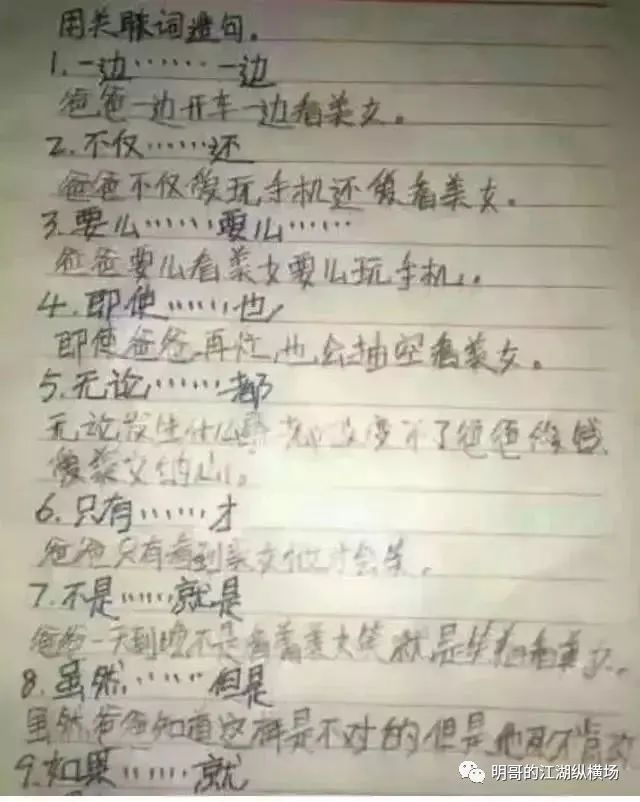 用关联词造句。
1.一边……一边
爸爸一边开车一边看美女。
2.不仅……还
爸爸不仅爱玩手机还爱看美女。
3.要么……要么……
爸爸要么看美女要么玩手机。
4.即使……也
即使爸爸再忙,也会抽空看美女。
5.无论……都
无论发生什么事都改变不了爸爸
美女的心。
6.只有……才
爸爸只有看到美女他才会笑。
7.不是……就是
爸爸一天到晚不是看着美女笑就是笑着看美女。
8.虽然……但是
虽然爸爸知道这样是不对的但是他
9.如果……就
明哥的江湖纵横场